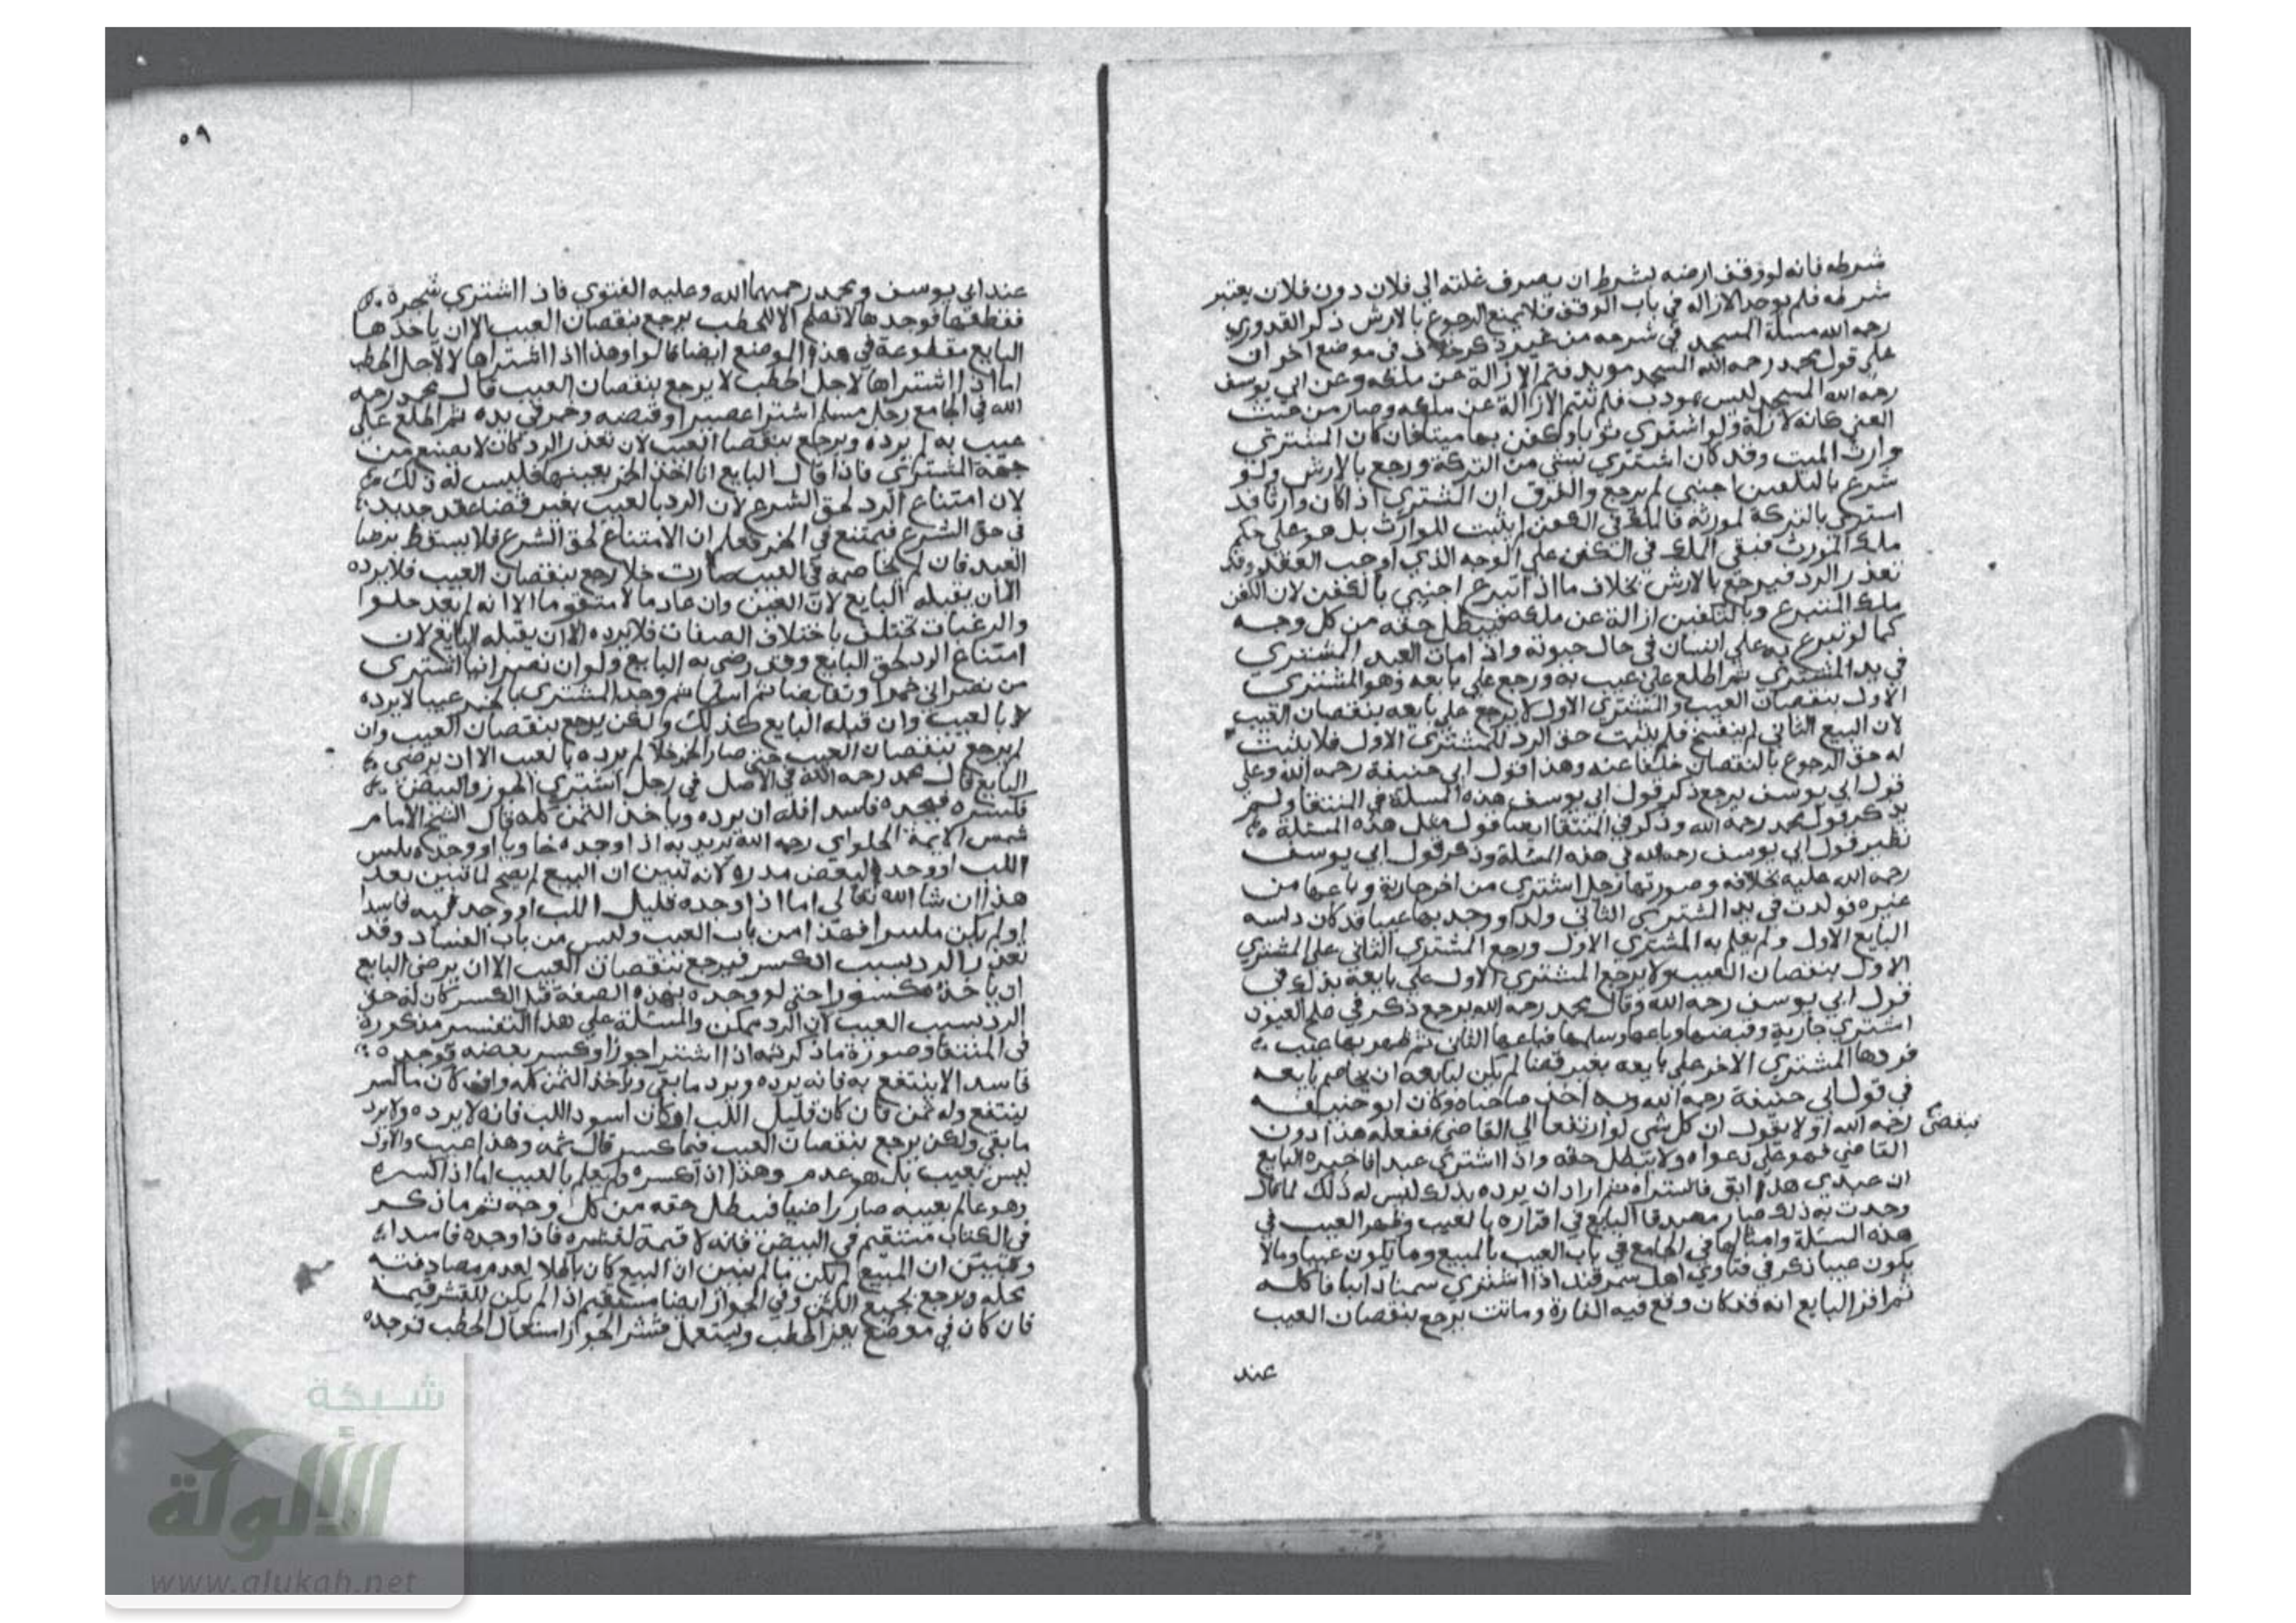 شرطه فانه لو وقف ارضه بشرط ان يصرف غلته الي فلان دون فلان يعتبر
شرطه فلم يوجد الازاله في باب الوقف فلا يمنع الرجوع بالارش ذكر القدوري
رحمه الله مسئلة المسجد في شرحه من غير ذكر خلاف في موضع اخر ان
علي قول محمد رحمه الله المسجد موبد فتم الازالة عن ملكه وعن ابي يوسف
رحمه الله المسجد ليس بموبد فلم تتم الازالة عن ملكه وصار من حيث
المعني كانه لازالة ولو اشتري ثوبا وكفن بها ميتا فان كان المشتري
وارث الميت وقد كان اشتري بشي من التركة ورجع بالارش ولو
تبرع بالتكفين اجنبي لم يرجع والفرق ان المشتري اذا كان وارثا فقد
اشتري بالتركة لمورثه فالملك في الكفن لم يثبت للوارث بل هو علي حكم
ملك المورث فبقي الملك في الكفن علي الوجه الذي اوجب العقد وقد
تعذر الرد فيرجع بالارش بخلاف ما اذا تبرع اجنبي بالكفن لان الكفن
ملك المتبرع وبالتكفين ازالة عن ملكه فيبطل حقه من كل وجه
كما لو تبرع به علي انسان في حال حيوته واذا مات العبد المشتري
في يد المشتري ثم اطلع علي عيب به ورجع علي بايعه وهو المشتري
الاول بنقصان العيب والمشتري الاول لا يرجع علي بايعه بنقصان العيب
لان البيع الثاني لم ينفسخ فلم يثبت حق الرد للمشتري الاول فلا يثبت
له حق الرجوع بالنقصان خلفا عنه وهذا قول ابي حنيفة رحمه الله وعلي
قول ابي يوسف يرجع ذكر قول ابي يوسف هذه المسئلة في المنتقا ولم
يذكر قول محمد رحمه الله وذكر في المنتقا ايضا قول مثل هذه المسئلة
نظير قول ابي يوسف رحمه الله في هذه المسئلة وذكر قول ابي يوسف
رحمه الله عليه بخلافه وصورتها رجل اشتري من اخر جارية وباعها من
غيره فولدت في يد المشتري الثاني ولدا ووجد بها عيبا قد كان دلسه
البايع الاول ولم يعلم به المشتري الاول ورجع المشتري الثاني علي المشتري
الاول بنقصان العيب ولا يرجع المشتري الاول علي بايعه بذلك في
قول ابي يوسف رحمه الله وقال محمد رحمه الله يرجع ذكر في صلح العيون
اشتري جارية وقبضها وباعها وسلمها فباعها الثاني ثم ظهر بها عيب
فردها المشتري الاخر علي بايعه بغير قضا لم يكن لبايعه ان يخاصم بايعه
في قول ابي حنيفة رحمه الله وبه اخذ صاحباه وكان ابو حنيفه
رحمه الله اولا يقول ان كل شي لو ارتفعا الي القاضي ففعله هذا دون
القاضي فهو علي دعواه ولا يبطل حقه واذا اشتري عبدا فاخبره البايع
ان عبدي هذا ابق فاشتراه ثم اراد ان يرده بذلك ليس له ذلك لما قال
وجدت به ذلك صار مصدقا البايع في اقراره بالعيب وظهر العيب في
هذه المسئلة وامثالها في الجامع في باب العيب بالمبيع وما يكون عيبا وما لا
يكون عيبا ذكر في فتاوي اهل سمرقند اذا اشتري سمنا ذايبا فاكله
ثم اقر البايع انه قد كان وقع فيه الفارة وماتت يرجع بنقصان العيب
عند
٥٩
عند ابي يوسف ومحمد رحمهما الله وعليه الفتوي فاذا اشتري شجرة
فقطعها فوجدها لا تصلح الا للحطب يرجع بنقصان العيب الا ان ياخذها
البايع مقطوعة في هذا الموضع ايضا قالوا وهذا اذا اشتراها لا لاجل الحطب
اما اذا اشتراها لاجل الحطب لا يرجع بنقصان العيب قال محمد رحمه
الله في الجامع رجل مسلم اشترا عصيرا وقبضه وخمر في يده ثم اطلع علي
عيب به لم يرده ويرجع بنقصان العيب لان تعذر الرد كان لا بصنع من
جهة المشتري فاذا قال البايع انا اخذ الخمر بعينها فليس له ذلك
لان امتناع الرد لحق الشرع لان الرد بالعيب بغير قضا عقد جديد
في حق الشرع فيمتنع في الخمر فعلم ان الامتناع لحق الشرع فلا يسقط برضا
العبد فان لم يخاصمه في العيب صارت خلا رجع بنقصان العيب فلا يرده
الا ان يقبله البايع لان العين وان عاد مالا متقوما الا انه لم يعد حلوا
والرغبات تختلف باختلاف الصفات فلا يرده الا ان يقبله البايع لان
امتناع الرد لحق البايع وقد رضي به البايع ولو ان نصرانيا اشتري
من نصراني خمرا وتقابضا ثم اسلما ثم وجد المشتري بالخمر عيبا لا يرده
لا بالعيب وان قبله البايع كذلك ولكن يرجع بنقصان العيب وان
لم يرجع بنقصان العيب حتي صار الخمر خلا لم يرده بالعيب الا ان يرضي
البايع قال محمد رحمه الله في الاصل في رجل اشتري الجوز والبيض
فكسره فيجده فاسدا فله ان يرده وياخذ الثمن كله قال الشيخ الامام
شمس الايمة الحلواي رحمه الله يريد به اذا وجده خاويا او وجده يابس
اللب او وجد البيض مدره لانه تبين ان البيع لم يصح لما تبين بعد
هذا ان شا الله تعالي اما اذا وجده قليل اللب او وجد لبه فاسدا
او لم يكن فهذا من باب العيب وليس من باب الفساد وقد
تعذر الرد بسبب الكسر فيرجع بنقصان العيب الا ان يرضي البايع
ان ياخذه مكسورا حتي لو وجده بهذه الصفة قبل الكسر كان له حق
الرد بسبب العيب لان الرد ممكن والمسئلة علي هذا التفسير مذكورة
في المنتقا وصورة ما ذكر ثمه اذا اشترا جوزا وكسر بعضه فوجده
فاسدا لا ينتفع به فانه يرده ويرد ما بقي وياخذ الثمن كله وان كان ما كسر
ينتفع وله ثمن فان كان قليل اللب او كان اسود اللب فانه لا يرده ولا يرد
ما بقي ولكن يرجع بنقصان العيب فيما كسر قال ثمه وهذا عيب والاول
ليس بعيب بل هو عدم وهذا اذا كسره ولم يعلم بالعيب اما اذا كسره
وهو عالم بعيبه صار راضيا فيبطل حقه من كل وجه ثم ما ذكر
في الكتاب مستقيم في البيض فانه لا قيمة لقشره فاذا وجده فاسدا
وتبين ان المبيع لم يكن مالا تبين ان البيع كان باطلا لعدم مصادفته
محله ويرجع بجميع الثمن وفي الجواز ايضا مستقيم اذا لم يكن للقشر قيمة
فان كان في موضع يعز الحطب ويستعمل قشر الجوز استعمال الحطب فوجده
شبكة
الألوكة
www.alukah.net